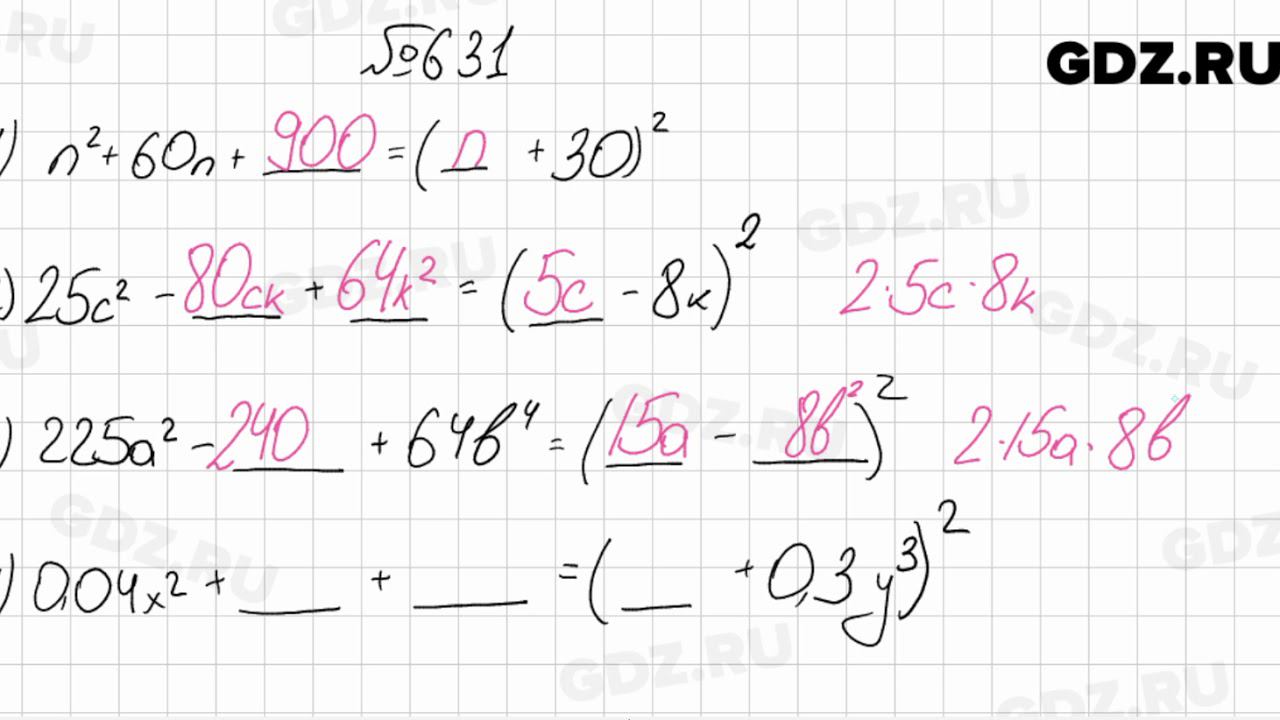 №631
GDZ.RU
) n² + 60n + 900 = ( n + 30)²
) 25c² - 80ck + 64k² = ( 5c - 8k)² 2·5c·8k
) 225a² - 240 + 64b⁴ = ( 15a - 8b² )² 2·15a·8b
) 0,04x² + ___ + ___ = ( ___ + 0,3y³)²